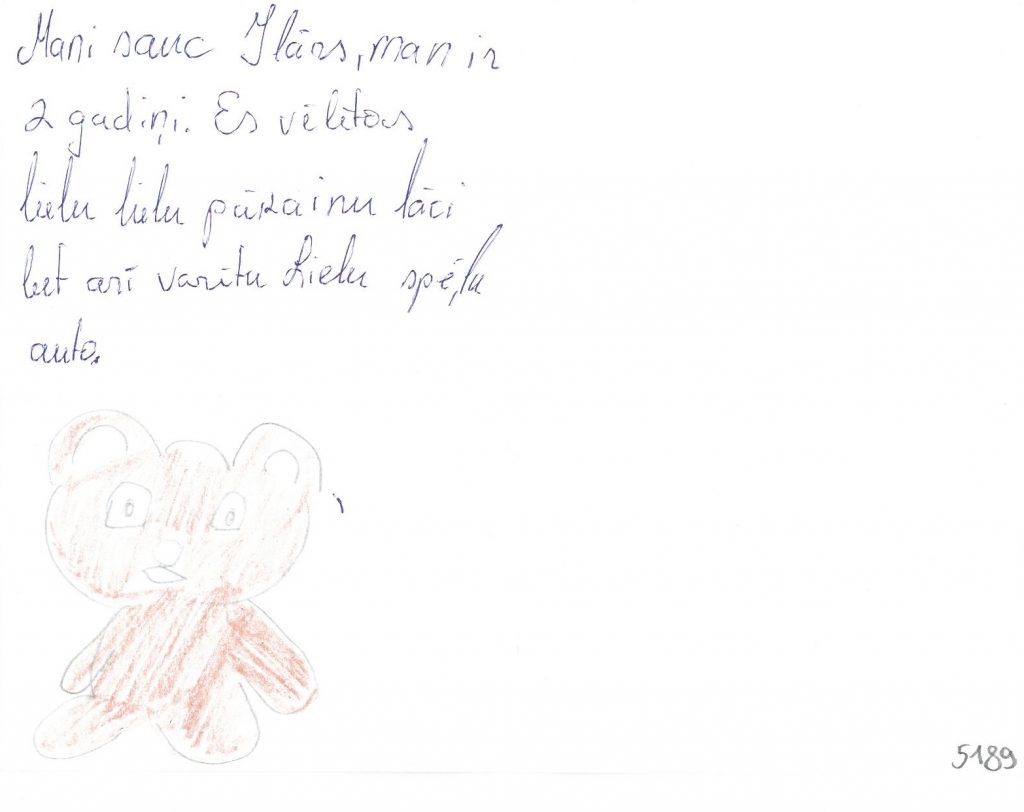 Mani sauc Ilārs, man ir
2 gadiņi. Es vēlētos
lielu lielu pūkainu lāci
bet arī varētu Lielu spēļu
auto.
5189